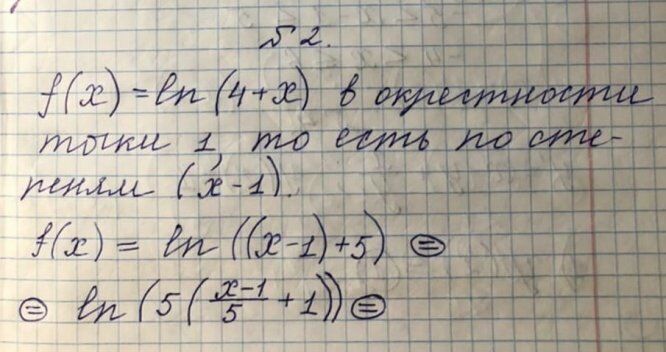 № 2.
f(x) = ln (4+x) в окрестности
точки 1, то есть по сте-
пеням (x-1).
f(x) = ln ((x-1)+5) ⊜
⊜ ln (5 (\frac{x-1}{5} + 1)) ⊜